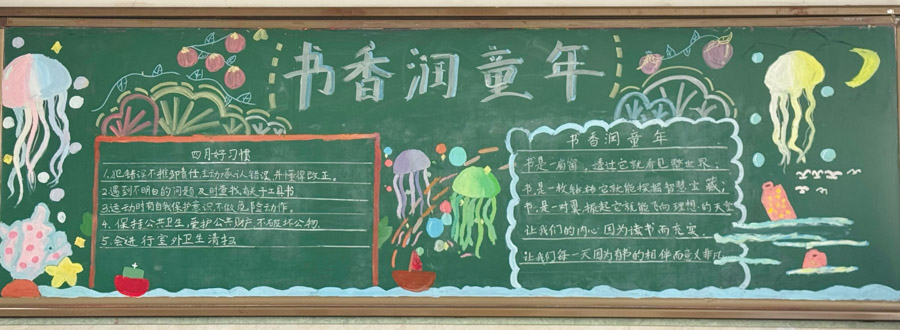 书香润童年
四月好习惯
1.犯错误不推卸责任主动承认错误,并懂得改正。
2.遇到不明白的问题及时查找敲于工具书
3.运动时有自我保护意识不做危险动作。
4.保持公共卫生,爱护公共财产,不破坏公物.
5.会进行室外卫生清扫
书香润童年
书是一扇窗,透过它就看见整世界;
书是一枚钻铸它就能探掘智慧宝藏;
书是一对翼,振起它就能飞向理想的天空
让我们的内心因为读书而充实.
让我们每一天因为有书的相伴而意义非凡